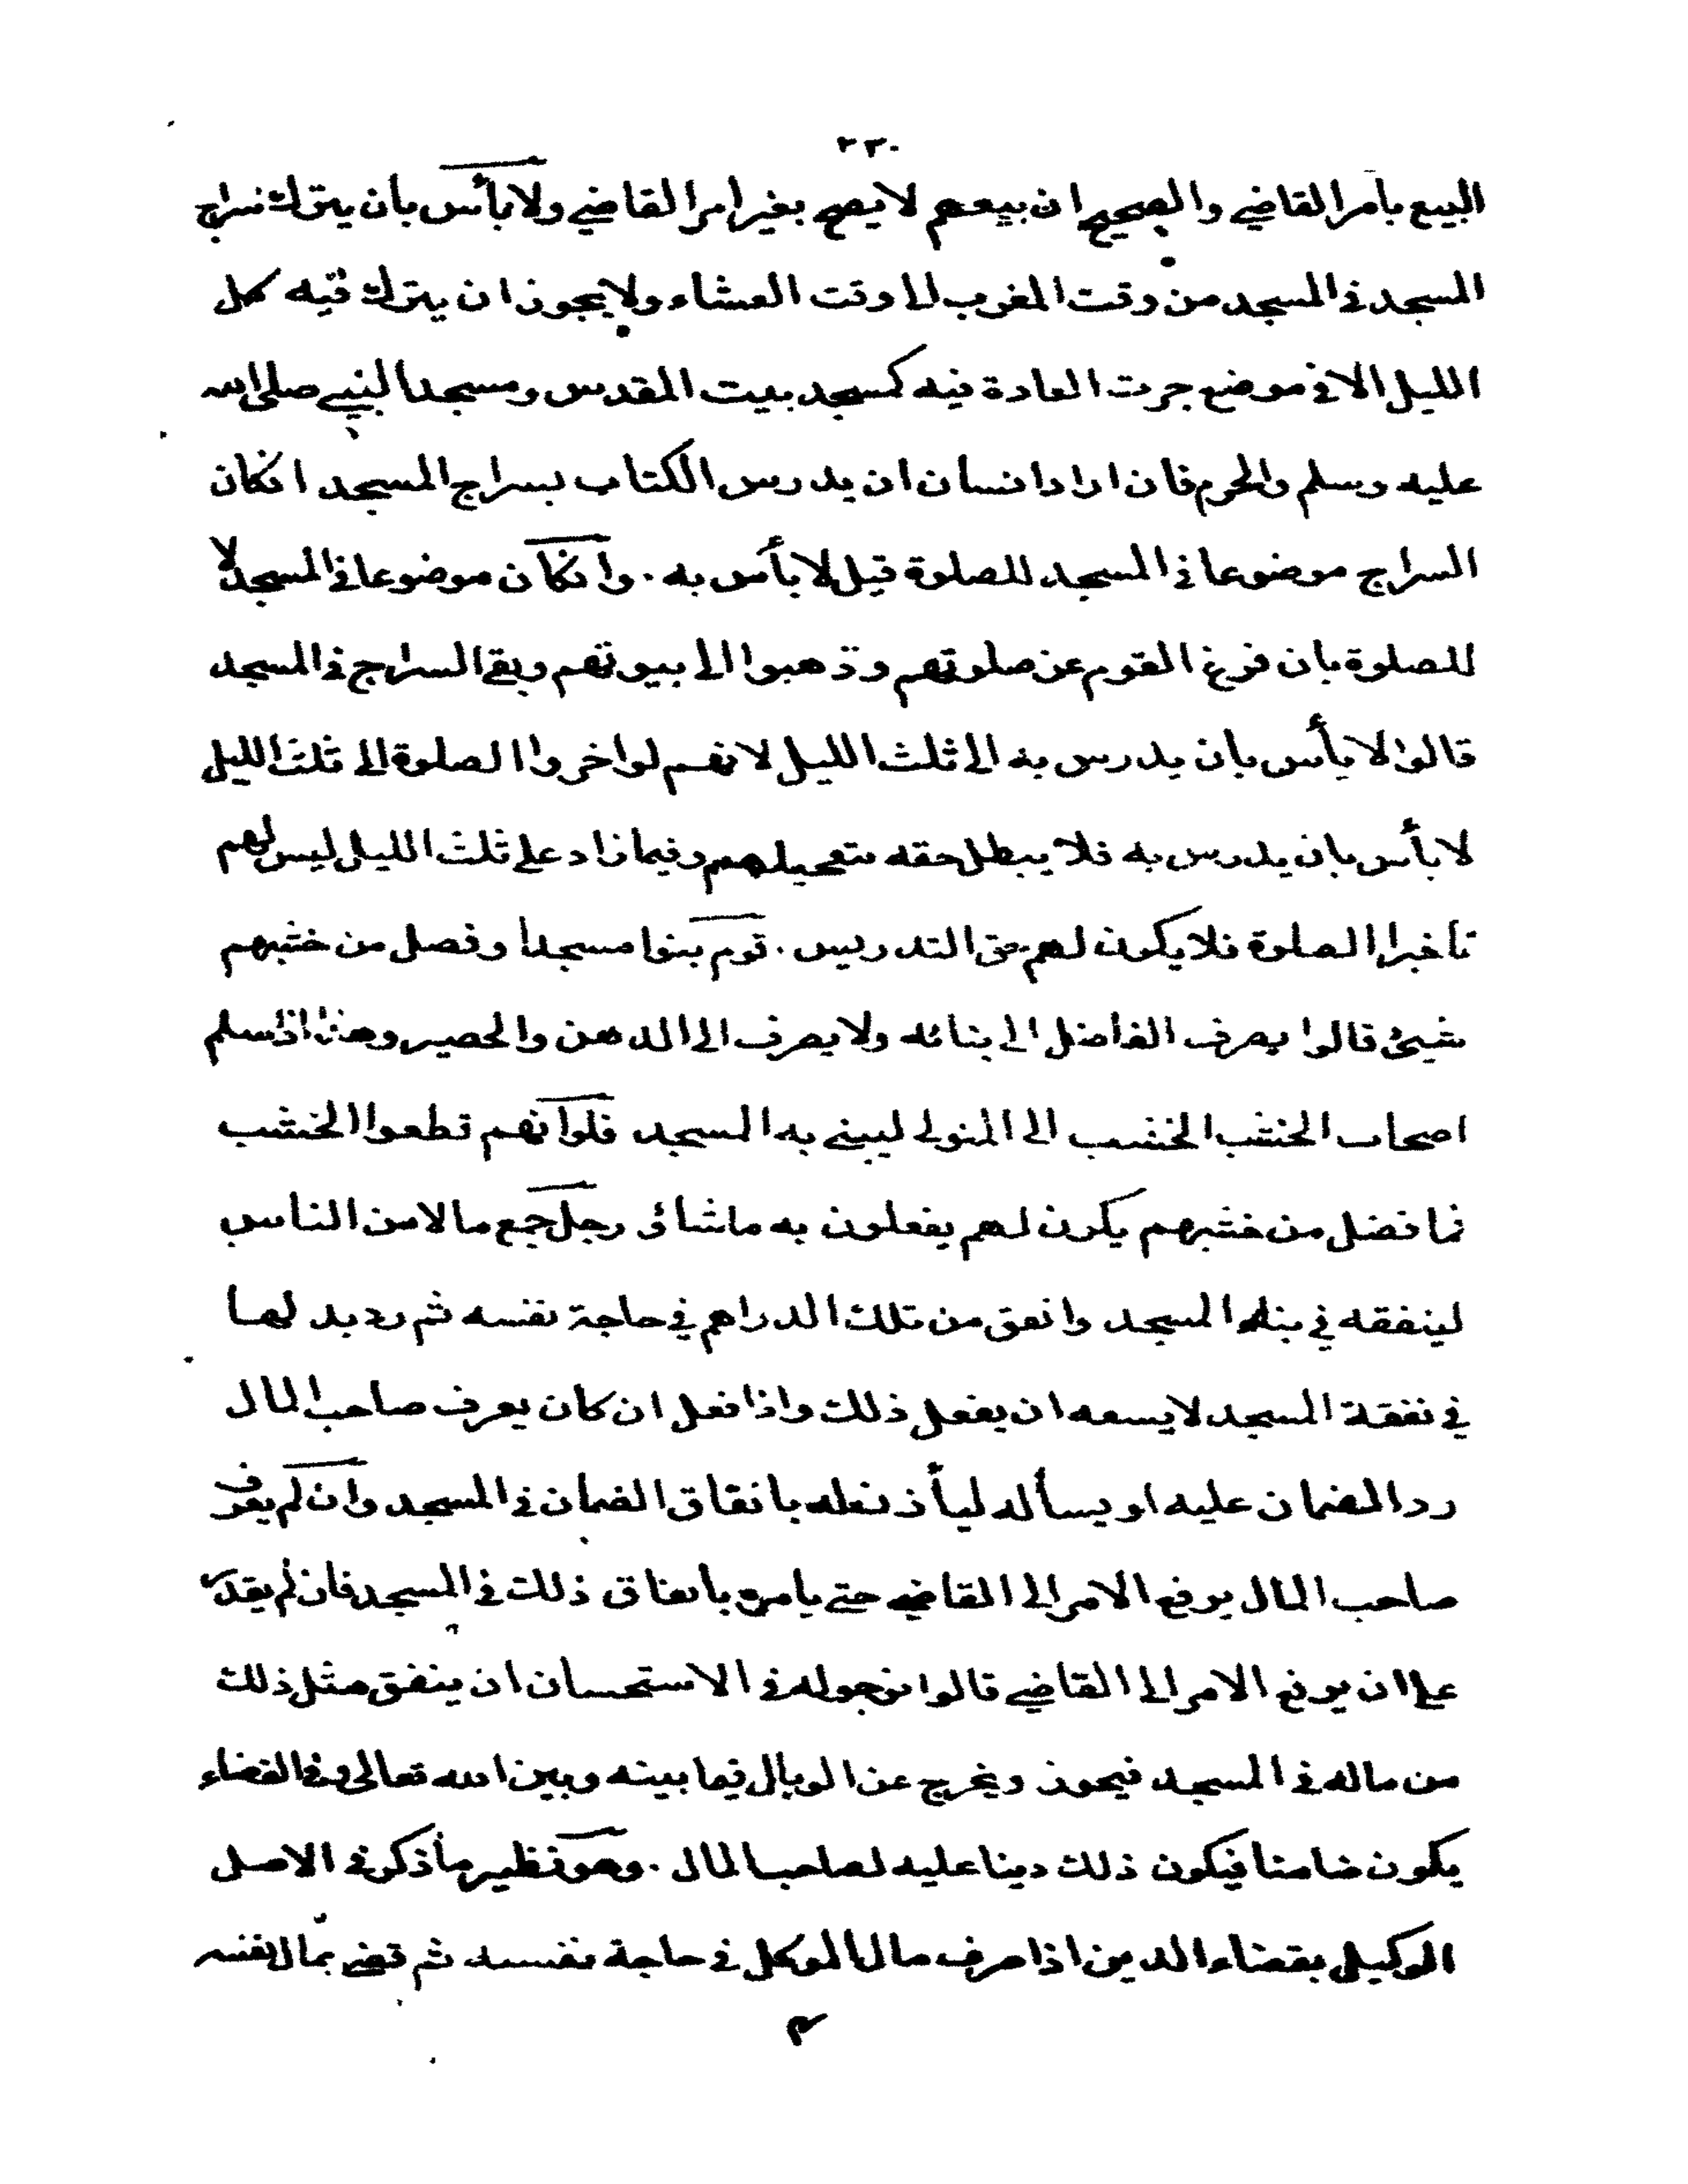 ٢٣٠
البيع بامر القاضي والصحيح ان بيعهم لا يصح بغير امر القاضي ولا بأس بان يترك سراج
المسجد في المسجد من وقت المغرب الى وقت العشاء ولا يجوز ان يترك فيه كل
الليل الا في موضع جرت العادة فيه كمسجد بيت المقدس ومسجد النبي صلى الله
عليه وسلم والحرم فان اراد انسان ان يدرس الكتاب بسراج المسجد انكان
السراج موضوعا في المسجد للصلوة قيل لا بأس به . وانكان موضوعا في المسجد لا
للصلوة بان فرغ القوم عن صلوتهم وذهبوا الى بيوتهم وبقي السراج في المسجد
قالوا لا بأس بان يدرس به الى ثلث الليل لانهم لو اخروا الصلوة الى ثلث الليل
لا بأس بان يدرس به فلا يبطل حقه بتعجيلهم وفيما زاد على ثلث الليل ليس لهم
تاخير الصلوة فلا يكون لهم حق التدريس . قوم بنوا مسجدا وفضل من خشبهم
شيئ قالوا يصرف الفاضل الى بنائه ولا يصرف الى الدهن والحصير وهذا اذا سلم
اصحاب الخشب الخشب الى المتولى ليبني به المسجد فلو انهم قطعوا الخشب
فما فضل من خشبهم يكون لهم يفعلون به ماشاؤ رجل جمع مالا من الناس
لينفقه في بناء المسجد وانفق من تلك الدراهم في حاجة نفسه ثم رد بدلها
في نفقة المسجد لا يسعه ان يفعل ذلك واذا فعل ان كان يعرف صاحب المال
رد الضمان عليه او يسأله ليأذن له بانفاق الضمان في المسجد وان لم يعرف
صاحب المال يرفع الامر الى القاضي حتى يامره بانفاق ذلك في المسجد فان لم يقدر
على ان يرفع الامر الى القاضي قالوا نرجو له في الاستحسان ان ينفق مثل ذلك
من ماله في المسجد فيجوز ويخرج عن الوبال فيما بينه وبين الله تعالى وفي القضاء
يكون ضامنا فيكون ذلك دينا عليه لصاحب المال . وهو نظير ما ذكر في الاصل
الوكيل بقضاء الدين اذا صرف مال الموكل في حاجة نفسه ثم قضى بمال نفسه